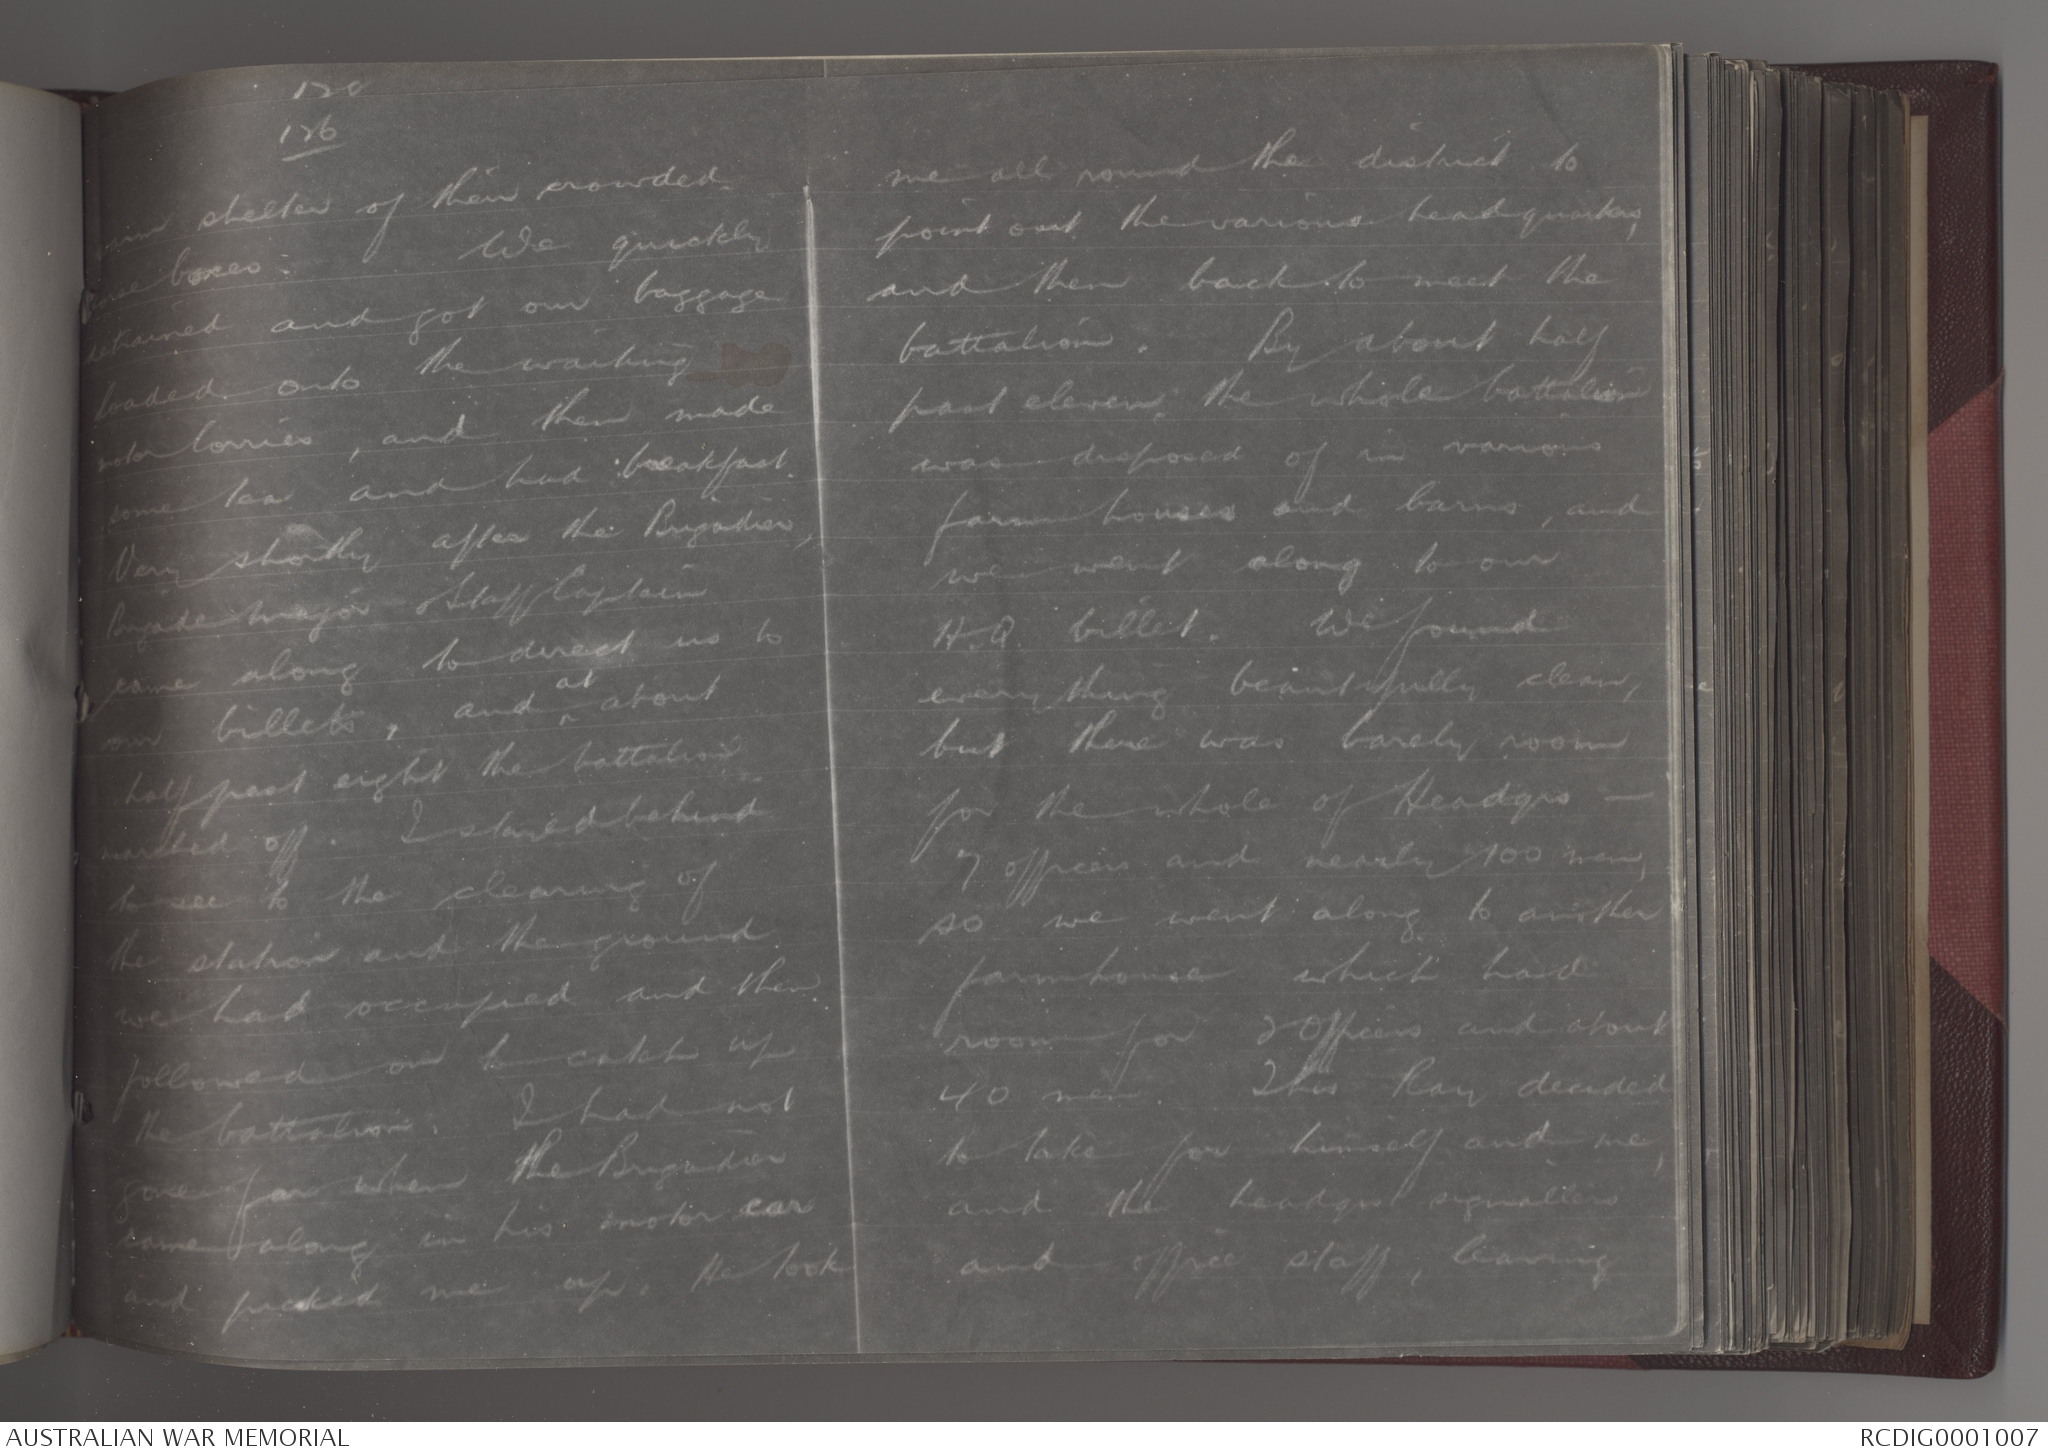 120
126
shelter of their crowded
horse boxes. We quickly
detrained and got our baggage
loaded onto the waiting
motor lorries, and then made
some tea and had breakfast.
Very shortly after the Brigadier,
Brigade Major & Staff Captain
came along to direct us to
our billets, and at about
half past eight the battalion
marched off. I stayed behind
to see to the clearing of
the station and the ground
we had occupied and then
followed on to catch up
the battalion. I had not
gone far when the Brigadier
came along in his motor car
and picked me up. He took
me all round the district to
point out the various headquarters,
and then back to meet the
battalion. By about half
past eleven, the whole battalion
was disposed of in various
farm houses and barns, and
we went along to our
H.Q. billet. We found
everything beautifully clean,
but there was barely room
for the whole of Headqrs —
7 officers and nearly 100 men,
so we went along to another
farmhouse which had
room for 2 Officers and about
40 men. This Ray decided
to take for himself and me,
and the headqrs signallers
and office staff, leaving
AUSTRALIAN WAR MEMORIAL
RCDIG0001007